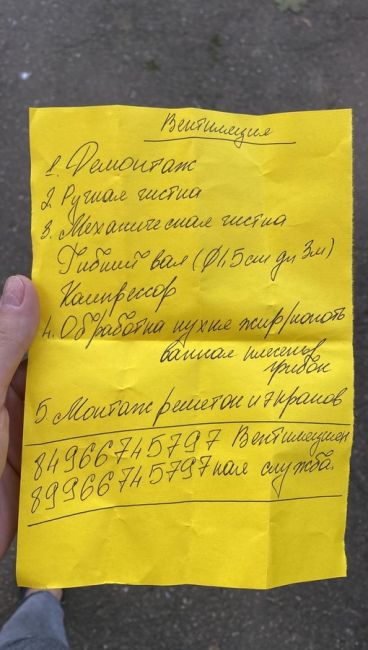 Вентиляция
1. Демонтаж
2. Ручная чистка
3. Механическая чистка
Гибкий вал (Ø1,5см дл 3м)
Компрессор
4. Обработка кухня жир/копоть
ванная плесень
грибок
5. Монтаж решеток и экранов
84966745797 Вентиляцион
89966745797 ная служба.